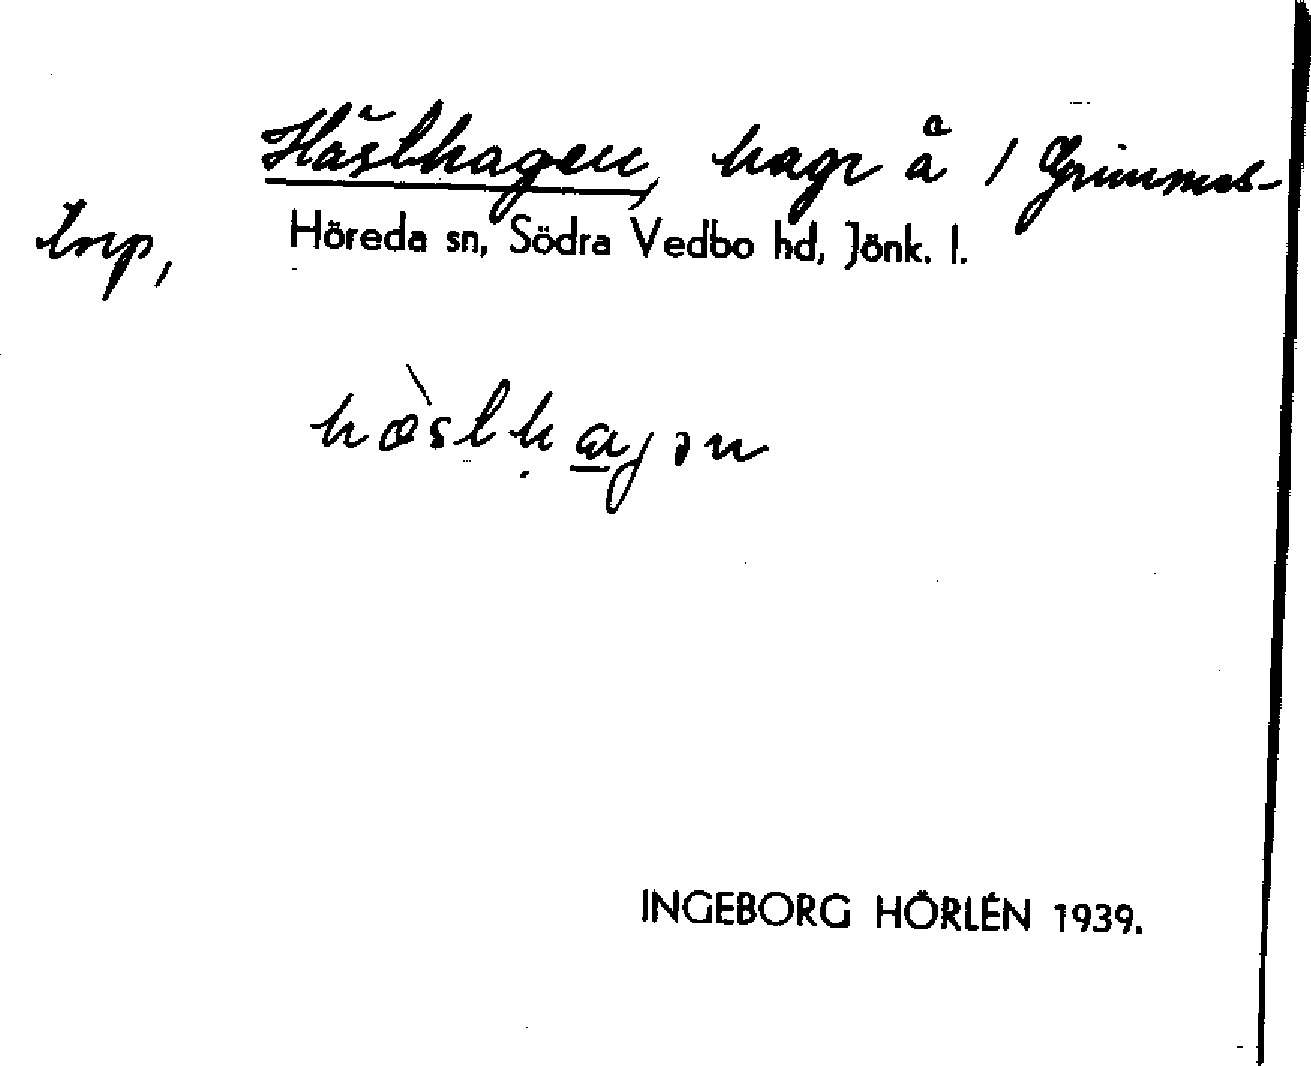 Hästhagen, hage å 1 Grimmes-
torp,
Höreda sn, Södra Vedbo hd, Jönk. l.
hæ̀stḥa̲gən
INGEBORG HÖRLÉN 1939.